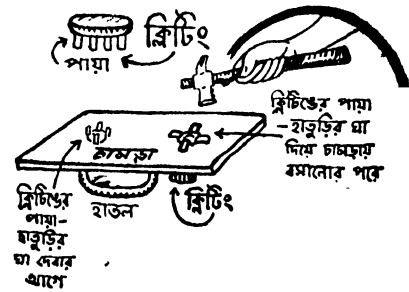 ক্লিটিং
পায়া
ক্লিটিঙের পায়া
-হাতুড়ির ঘা
দিয়ে চামড়ায়
বসানোর পরে
চামড়া
ক্লিটিঙের
পায়া-
হাতুড়ির
ঘা দেবার
আগে
হাতল
ক্লিটিং